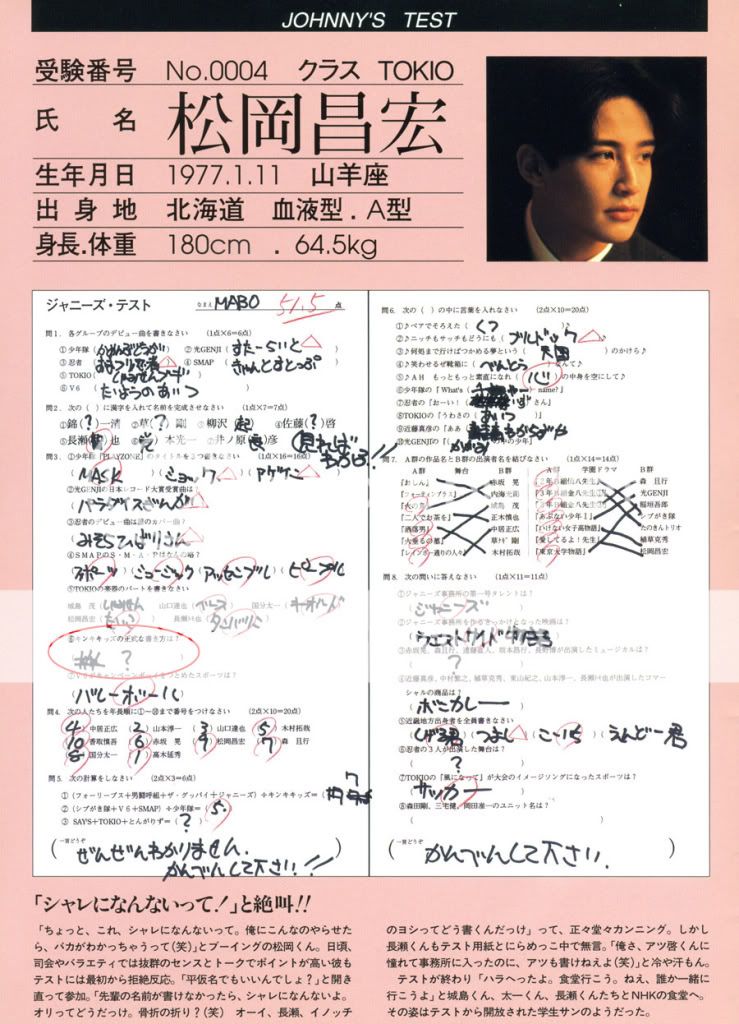 JOHNNY'S TEST
受験番号 No.0004 クラス TOKIO
氏名 松岡昌宏
生年月日 1977.1.11 山羊座
出身地 北海道 血液型.A型
身長.体重 180cm . 64.5kg
ジャニーズ・テスト なまえ MABO 51.5 点
問1. 各グループのデビュー曲を書きなさい (1点×6=6点)
①少年隊( ②光GENJI(すたーらいと
③忍者( ④SMAP(きゃんとすとっぷ
⑤TOKIO(
⑥V6(たいようのあいつ
問2. 次の( )に漢字を入れて名前を完成させなさい (1点×7=7点)
①錦(?)一清 ②草(?)剛 ③柳沢(超 ④佐藤(?)啓
⑤長瀬( )也 ⑥堂 本光一 ⑦井ノ原(良)彦
(MASK )(ミョック )(アケケニー
②光GENJIの日本レコード大賞受賞曲は?
(パラダイスぎんが
③忍者のデビュー曲は誰のカバー曲?
(みそらてんばりさん
④SMAPのS・M・A・Pはなんの略?
(スポーツ)(ミュージック)(アッセンブル)(ピープル
⑤TOKIOの楽器のパートを書きなさい
城島 茂( 山口達也(ベース 国分太一(キーボルド
松岡昌宏(たいこ 長瀬智也(タンバリン
⑥キンキキッズの正式な書き方は?
?
⑦V6がキャンペーンボーイをつとめたスポーツは?
(バレーボーール
問4. 次の人たちを年長順に①〜⑩まで番号をつけなさい (2点×10=20点)
(4)中居正広 (2)山本淳一 (3)山口達也 (5)木村拓哉
(10)香取慎吾 (6)赤坂 晃 (9)松岡昌宏 (7)森 且行
(8)国分太一 (1)高木延秀
問5. 次の計算をしなさい (2点×3=6点)
①(フォーリーブス+男闘呼組+ザ・グッバイ+ジャニーズ)+キンキキッズ=(
②(シブがき隊+V6+SMAP)÷少年隊=(5.
③ SAY'S+TOKIO+とんがりず=(?)
一言どうぞ
ぜんぜんわかりません.
かんべんして下さい!!
問6. 次の( )の中に言葉を入れなさい (2点×10=20点)
①♪ペアでそろえた(くつ )
②♪ニッチもサッチもどうにも(ブルドック
③♪何処まで行けばつかめる夢という(天国 )のかけら♪
④♪笑わせるぜ靴箱に(べんとう )なんて♪
⑤♪AH もっともっと素直になれ(心 )の中身を空にして♪
⑥少年隊の「What's( )name?」
⑦忍者の「おーい!( )さん」
⑧TOKIOの「うわさの(あいつ
⑨近藤真彦の「ああ
⑩光GENJIの「( 中の少年」
問7. A群の作品名とB群の出演者名を結びなさい (1点×14=14点)
A群 舞台 B群 A群 学園ドラマ B群
『おしん』 赤坂 晃 森 且行
内海光司 光GENJI
城島 茂 稲垣吾郎
『二人でお茶を』 正木慎也 『あぶない少年Ⅰ』 シブがき隊
『酒落男』 中居正広 『いけない女子高物語』 たのきんトリオ
草彅 剛 『愛してるよ!先生』 植草克秀
『レインボー通りの人々』 木村拓哉 『東京大学物語』 松岡昌宏
問8. 次の問いに答えなさい (1点×11=11点)
①ジャニーズ事務所の第一号タレントは?
(ジャニーズ
②ジャニーズ事務所を作るきっかけとなった映画は?
③赤坂晃、森且行、遠藤直人、坂本昌行、長野博が出演したミュージカルは?
( ? )
④近藤真彦、中村繁之、植草克秀、東山紀之、山本淳一、長瀬智也が出演したコマー
シャルの商品は?
(ボニカレー
⑤近畿地方出身者を全員書きなさい
(しげる君)(つよし)(こーいち)(えんどー君
⑥忍者の3人が出演した舞台は?
( ? )
⑦TOKIOの『風になって』が大会のイメージソングになったスポーツは?
(サッカー
⑧森田剛、三宅健、岡田准一のユニット名は?
一言どうぞ
かんべんして下さい.
「シャレになんないって!」と絶叫!!
「ちょっと、これ、シャレになんないって。俺にこんなのやらせた
ら、バカがわかっちゃうって(笑)」とブーイングの松岡くん。日頃、
司会やバラエティでは抜群のセンスとトークでポイントが高い彼も
テストには最初から拒絶反応。「平仮名でもいいんでしょ?」と開き
直って参加。「先輩の名前が書けなかったら、シャレになんないよ。
オリってどうだっけ。骨折の折り?(笑) オーイ、長瀬、イノッチ
のヨシってどう書くんだっけ」って、正々堂々カンニング。しかし
長瀬くんもテスト用紙とにらめっこ中で無言。「俺さ、アツ啓くんに
憧れて事務所に入ったのに、アツも書けねえよ(笑)」と冷や汗もん。
テストが終わり「ハラへったよ。食堂行こう。ねえ、誰か一緒に
行こうよ」と城島くん、太一くん、長瀬くんたちとNHKの食堂へ。
その姿はテストから開放された学生サンのようだった。